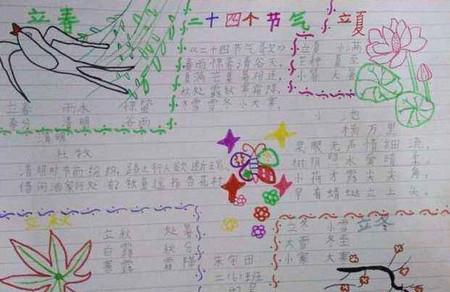 立春
二十四个节气
立夏
《二十四节气歌》
春雨惊春清谷天,
夏满芒夏暑相连,
秋处露秋寒霜降,
冬雪雪冬小大寒
立夏 小满
芒种 夏至
小暑 大暑
立春 雨水 惊蛰
春分 清明 谷雨
清明
杜牧
清明时节雨纷纷,路上行人欲断魂
借问酒家何处有?牧童遥指杏花村
小池
杨万里
泉眼无声惜细流,
树阴照水爱晴柔
小荷才露尖尖角
早有蜻蜓立上头
立秋
立秋 处暑
白露 秋分
寒露 霜降
立冬 小雪
大雪 冬至
小寒 大寒
立冬